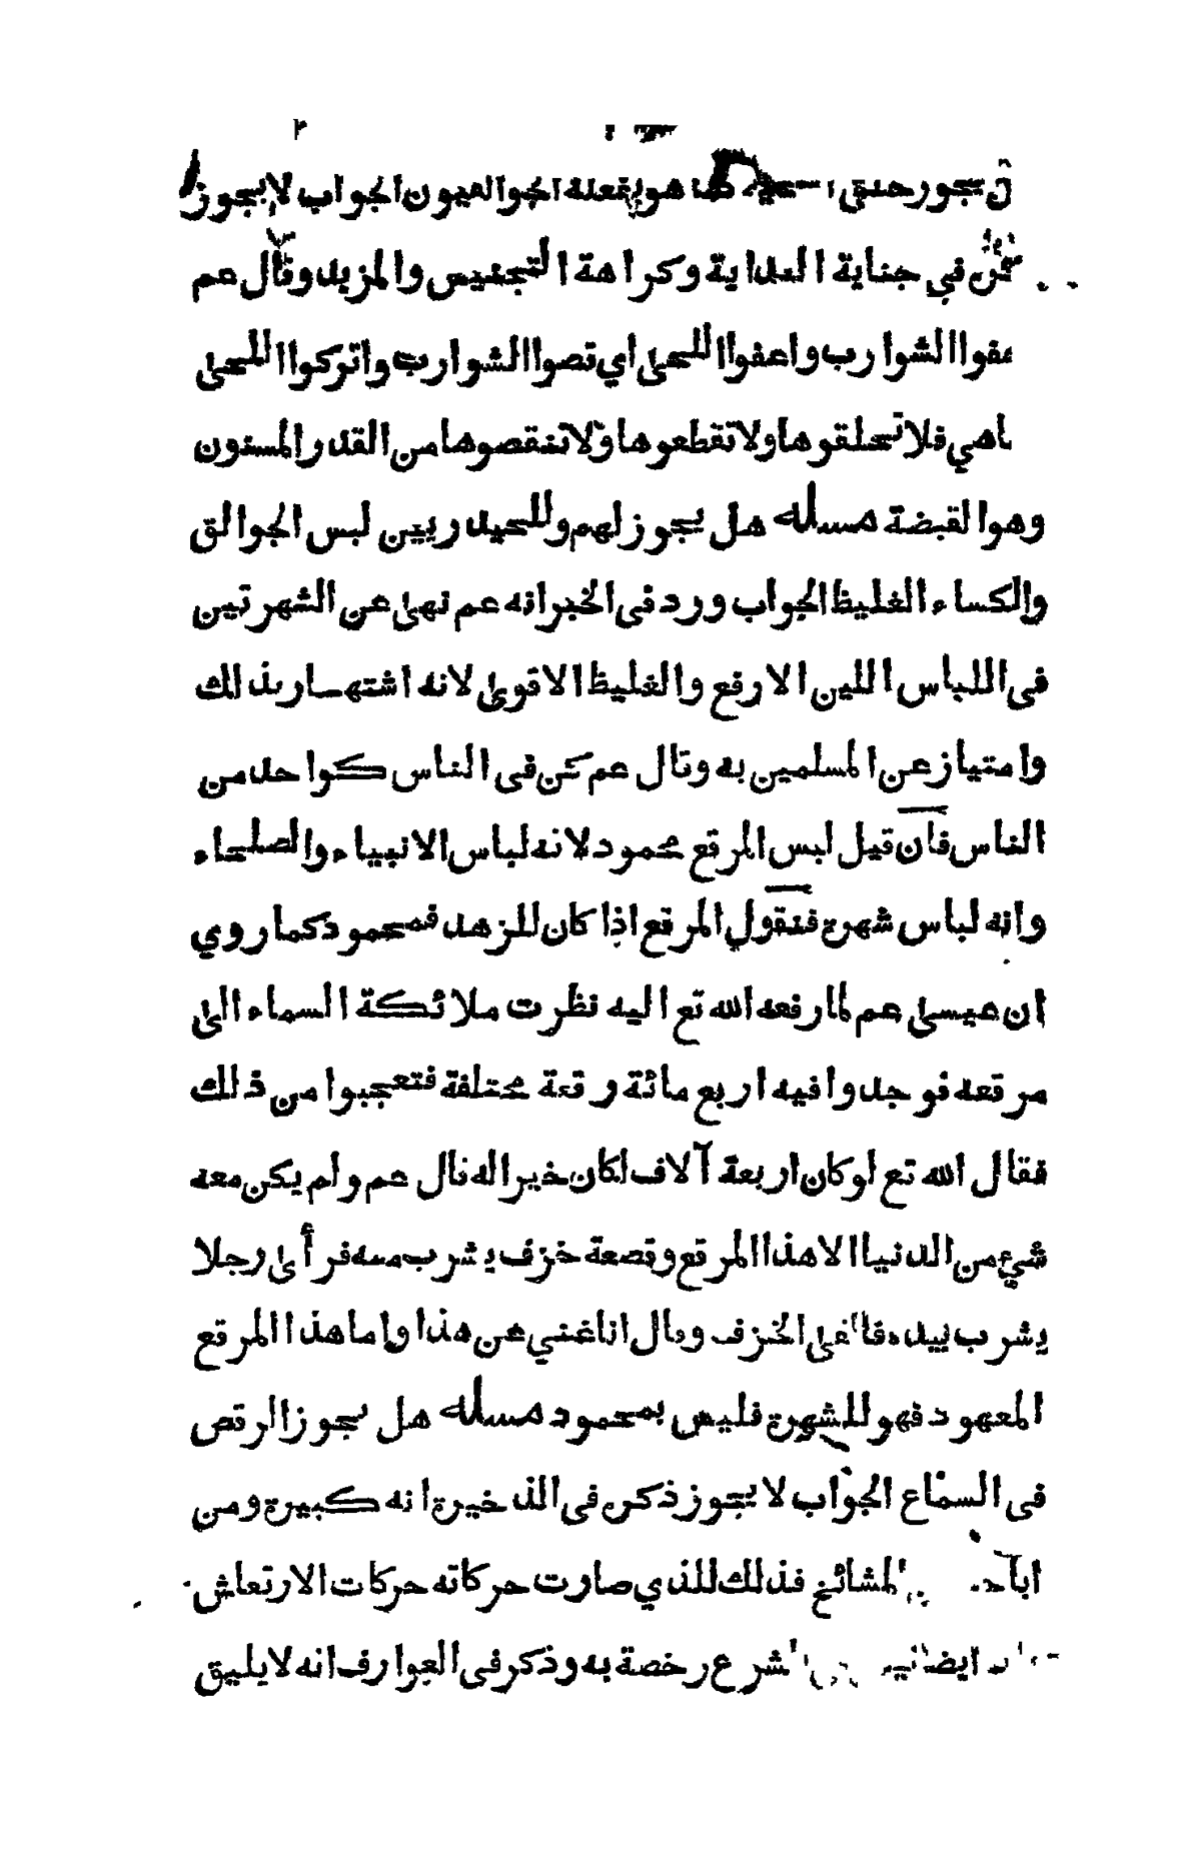 ٢
يجوز حلق كما هو يفعله الجوالقيون الجواب لا يجوز
في جناية الهداية وكراهة التجنيس والمزيد وقال عم
عفوا الشوارب واعفوا اللحى اي قصوا الشوارب واتركوا اللحى
ماهي فلا تحلقوها ولا تقطعوها ولا تنقصوها من القدر المسنون
وهو القبضة مسئله هل يجوز لهم وللحيدريين لبس الجوالق
والكساء الغليظ الجواب ورد فى الخبر انه عم نهى عن الشهرتين
فى اللباس اللين الارفع والغليظ الاقوى لانه اشتهار بذلك
وامتياز عن المسلمين به وقال عم كن فى الناس كواحد من
الناس فان قيل لبس المرقع محمود لانه لباس الانبياء والصلحاء
وانه لباس شهرة فنقول المرقع اذا كان للزهد فمحمود كما روي
ان عيسى عم لما رفعه الله تع اليه نظرت ملائكة السماء الى
مرقعه فوجدوا فيه اربع مائة رقعة مختلفة فتعجبوا من ذلك
فقال الله تع لو كان اربعة آلاف لكان خيرا له قال عم ولم يكن معه
شئ من الدنيا الا هذا المرقع وقصعة خزف يشرب منه فرأى رجلا
يشرب بيده فالقى الخزف وقال انا غني عن هذا واما هذا المرقع
المعهود فهو للشهرة فليس بمحمود مسئله هل يجوز الرقص
فى السماع الجواب لا يجوز ذكر فى الذخيرة انه كبيرة ومن
اباحه المشائخ فذلك للذي صارت حركاته حركات الارتعاش
ايضا الشرع رخصة به وذكر فى العوارف انه لا يليق